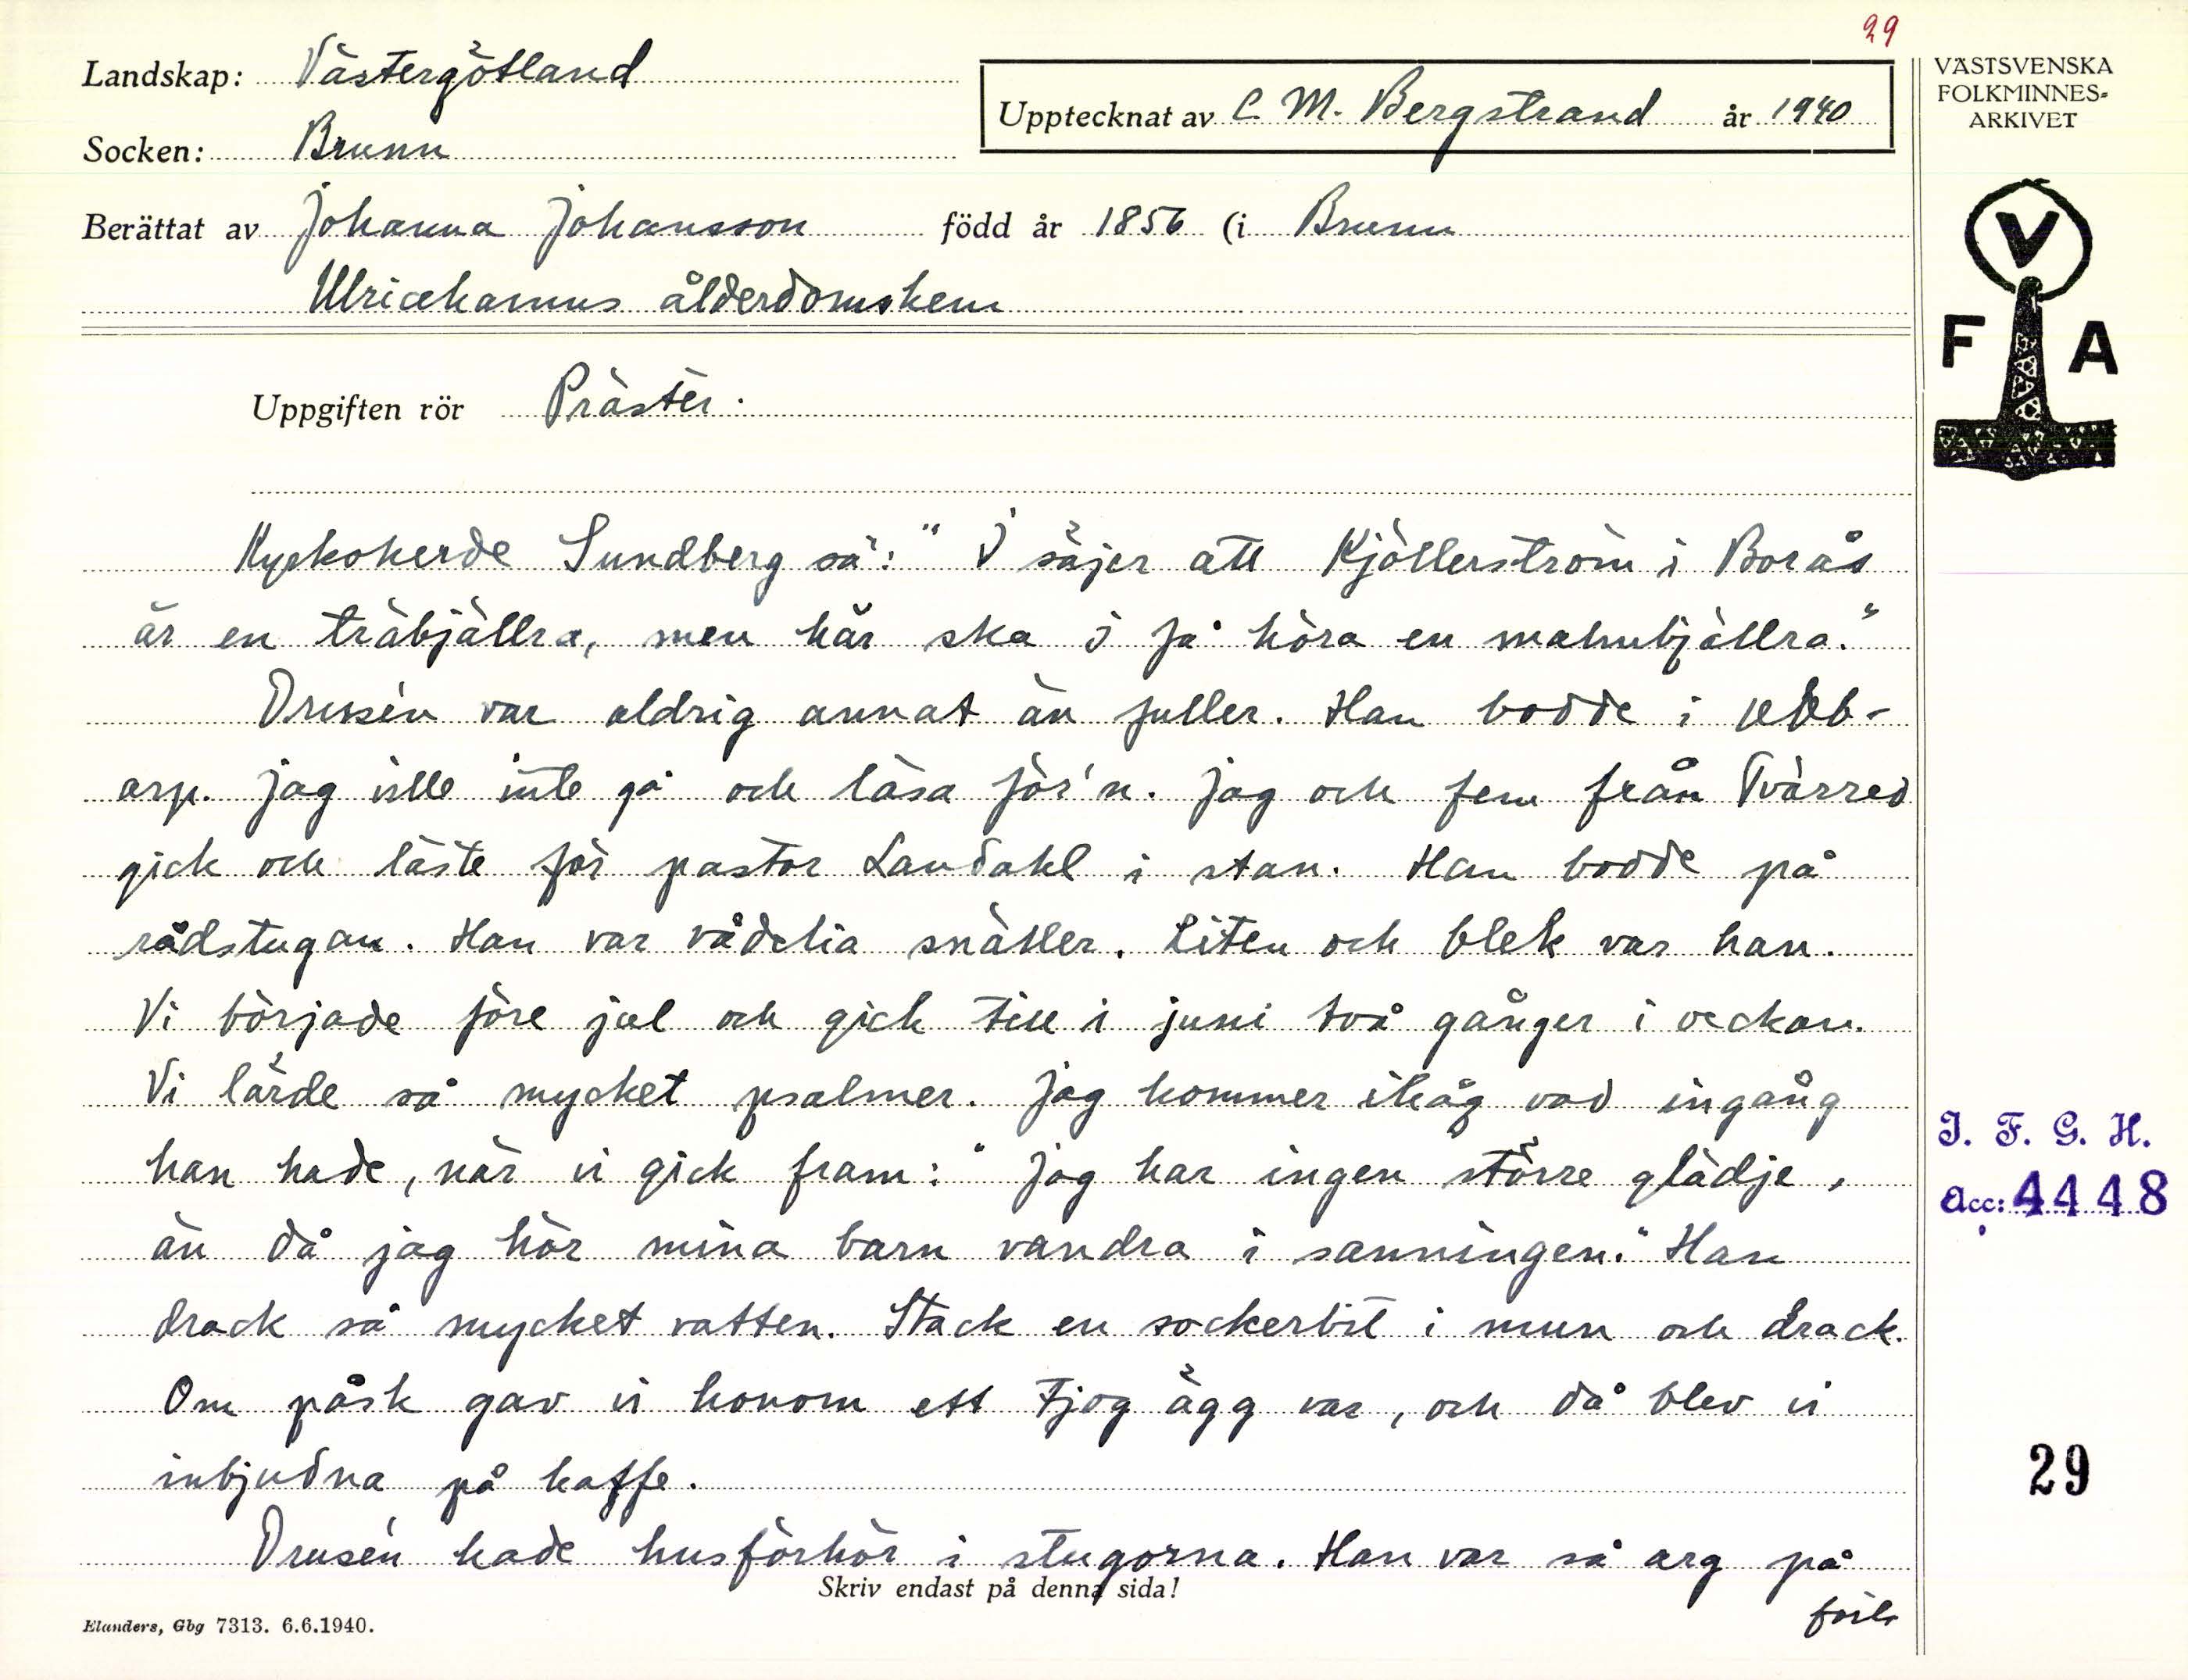 29
Landskap: Västergötland
Upptecknat av C. M. Bergstrand år 1940
Socken: Brunn
Berättat av Johanna Johansson född år 1856 (i Brunn
Ulricehamns ålderdomshem
Uppgiften rör Präster.
Kyrkoherde Sundberg sa: "I säjer att Kjöllerström i Borås
är en träbjällra, men här ska I få höra en malmbjällra."
Drusén var aldrig annat än fuller. Han bodde i Vebb-
arp. Jag ville inte gå och läsa för'n. Jag och fem från Tvärred
gick och läste för pastor Landahl i stan. Han bodde på
rådstugan. Han var vådelia snäller. Liten och blek var han.
Vi började före jul och gick till i juni två gånger i veckan.
Vi lärde så mycket psalmer. Jag kommer ihåg vad ingång
han hade, när vi gick fram: "Jag har ingen större glädje,
än då jag hör mina barn vandra i sanningen." Han
drack så mycket vatten. Stack en sockerbit i mun och drack.
Om påsk gav vi honom ett tjog ägg var, och då blev vi
inbjudna på kaffe.
Drusén hade husförhör i stugorna. Han var så arg på
forts
Skriv endast på denna sida!
Elanders, Gbg 7313. 6.6.1940.
VÄSTSVENSKA
FOLKMINNES=
ARKIVET
V
F A
I. F. G. H.
Acc: 4448
29